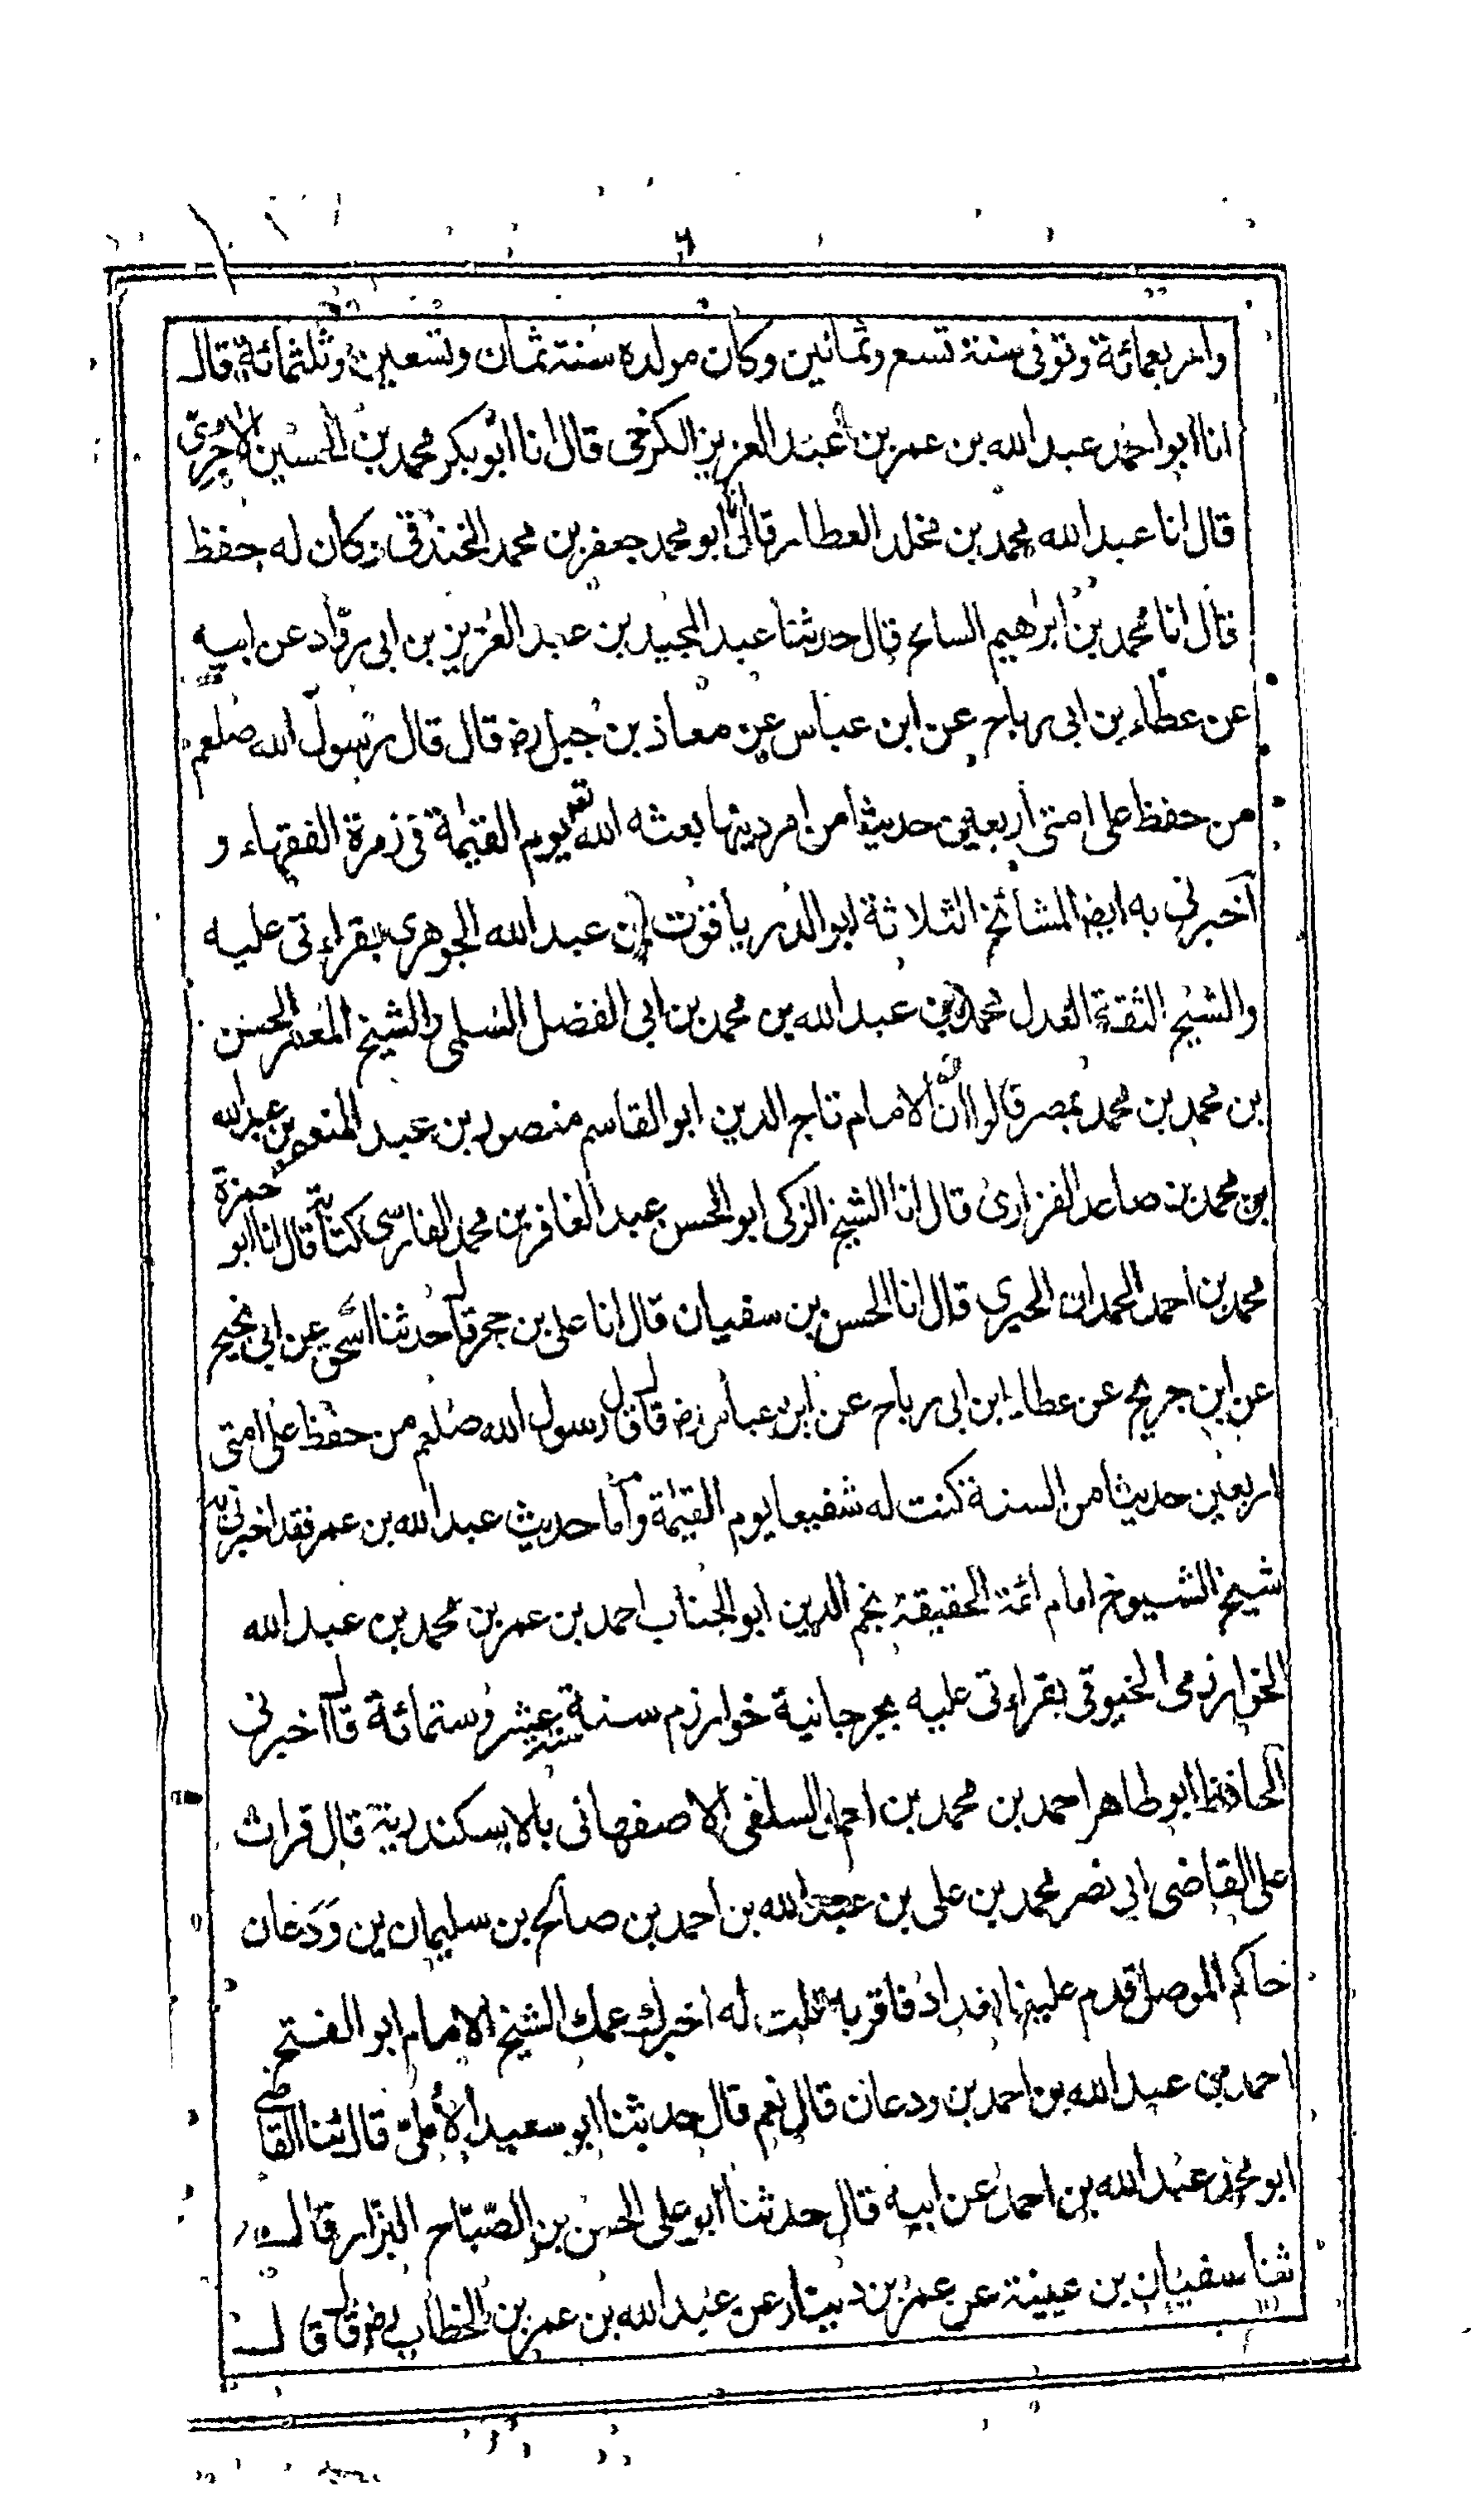 ٦
واربعمائة وتوفى سنة تسع وثمانين وكان مولده سنة ثمان وتسعين وثلثمائة قال
انا ابو احمد عبد الله بن عمر بن عبد العزيز الكرخى قال انا ابو بكر محمد بن الحسين الاجرّى
قال انا عبد الله محمد بن مخلد العطار قال انا ابو محمد جعفر بن محمد الخندقى وكان له حفظ
قال انا محمد بن ابرهيم السايح قال حدثنا عبد المجيد بن عبد العزيز بن ابى روّاد عن ابيه
عن عطاء بن ابى رباح عن ابن عباس عن معاذ بن جبل رض قال قال رسول الله صلعم
من حفظ على امتى اربعين حديثا من امر دينها بعثه الله تع يوم القيمة فى زمرة الفقهاء و
آخبرنى به ايضا المشائخ الثلاثة ابو الدر ياقوت بن عبد الله الجوهرى بقراءتى عليه
والشيخ الثقة العدل محمد بن عبد الله بن محمد بن ابى الفضل السلمى والشيخ المعمر الحسن
بن محمد بن محمد بمصر قالوا انا الامام تاج الدين ابو القاسم منصور بن عبد المنعم بن عبد الله
بن محمد بن صاعد الفزارى قال انا الشيخ الزكى ابو الحسن عبد الغافر بن محمد الفارسى كتابة قال انا ابو حمزة
محمد بن احمد الحمدان الحيرى قال انا الحسن بن سفيان قال انا على بن حجر قال حدثنا اسحق عن ابى نجيح
عن ابن جريج عن عطاء ابن ابى رباح عن ابن عباس رض قال قال رسول الله صلعم من حفظ على امتى
اربعين حديثا من السنة كنت له شفيعا يوم القيمة وآما حديث عبد الله بن عمر فقد اخبرنى به
شيخ الشيوخ امام ائمة الحقيقة نجم الدين ابو الجناب احمد بن عمر بن محمد بن عبد الله
الخوارزمى الخيوقى بقراءتى عليه بجرجانية خوارزم سنة عشر وستمائة قال اخبرنى
آلحافظ ابو طاهر احمد بن محمد بن احمد السلفى الاصفهانى بالاسكندرية قال قرات
على القاضى ابى نصر محمد بن على بن عبد الله بن احمد بن صالح بن سليمان بن وَدَعان
حاكم الموصل قدم علينا بغداد فاقر به قلت له اخبرك عمك الشيخ الامام ابو الفتح
احمد بن عبد الله بن احمد بن ودعان قال نعم قال حدثنا ابو سعيد الأملىّ قال ثنا القاضى
ابو محمد عبد الله بن احمد عن ابيه قال حدثنا ابو على الحسن بن الصّبّاح البزّار قال
ثنا سفيان بن عيينة عن عمر بن دينار عن عبد الله بن عمر بن الخطاب رض قال قال